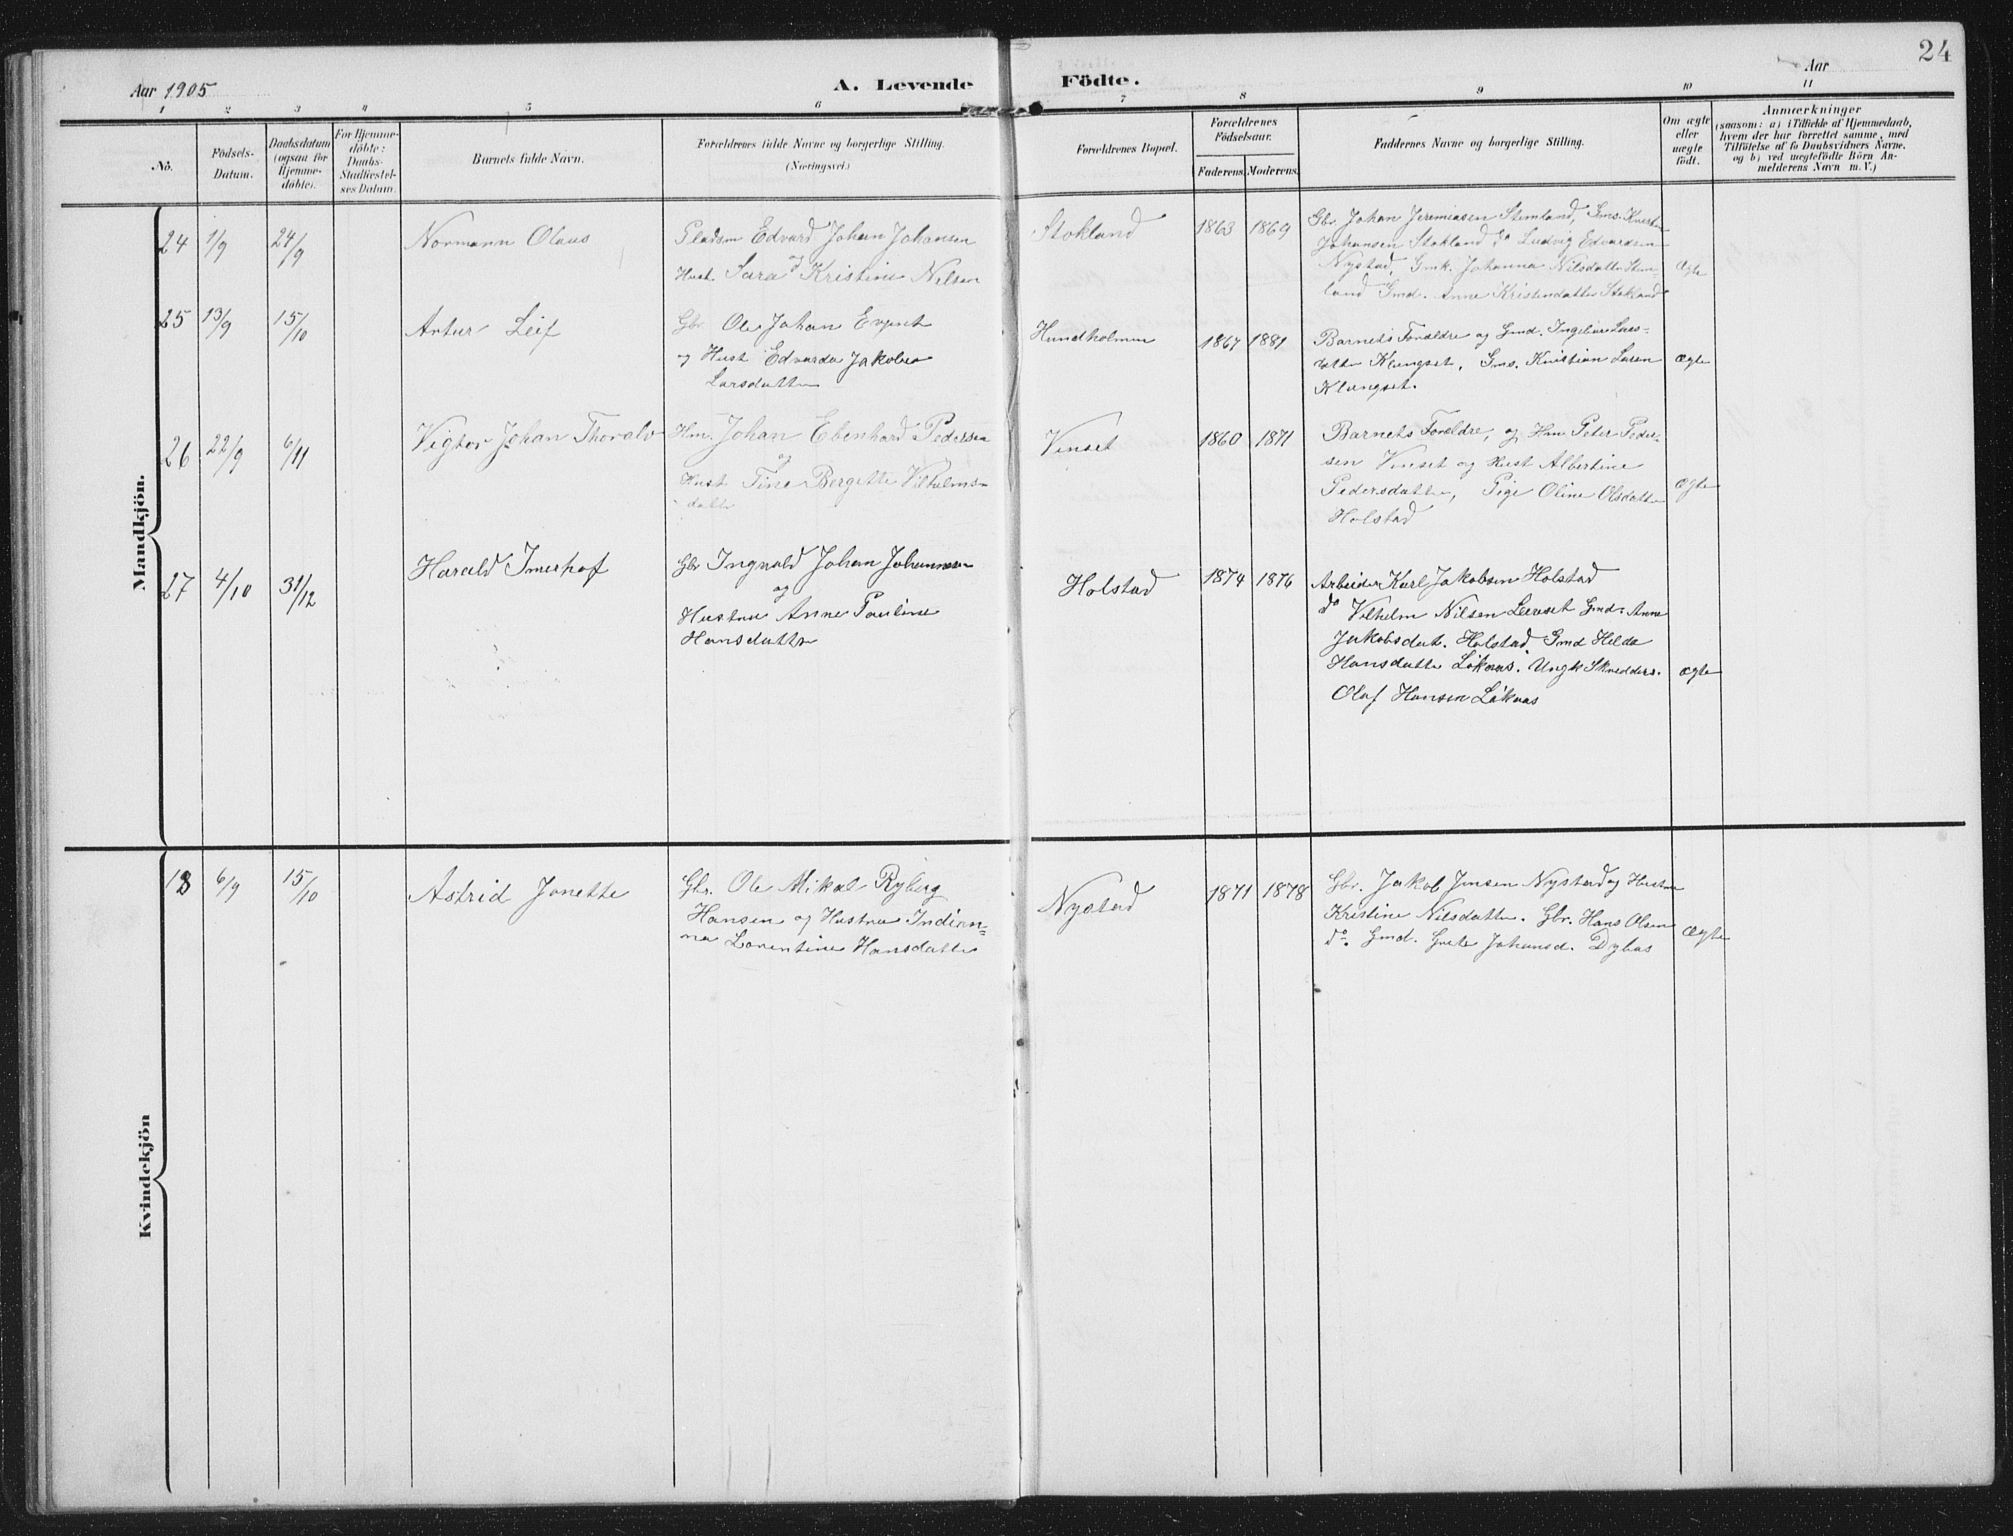 24
Aar 1905
A. Levende Födte.
Aar
1 2 3 4 5 6 7 8 9 10 11
No.
Födsels-Datum.
Daabsdatum (ogsaa for Hjemme-döbte).
For Hjemme-döbte: Daabs-Stadfæstel-ses Datum.
Barnets fulde Navn.
Forældrenes fulde Navne og borgerlige Stilling.
(Næringsvei.)
Forældrenes Bopæl.
Forældrenes Födselsaar.
Faderens. Moderens.
Faddernes Navne og borgerlige Stilling.
Om ægte eller uægte födt.
Anmærkninger
(saasom: a) i Tilfælde af Hjemmedaab,
hvem der har forrettet samme, med
Tilföielse af to Daabsvidners Navne.
og b) ved uægtefödte Börn An-
melderens Navn m. V.)
Mandkjön.
24 1/9 24/9
Normann Olaus
Pladsm Edvard Johan Johansen
og
Hust. Sara Kristine Nilsen
Stokland
1863 1869
Gbr Johan Jeremiasen Stemland, Gms.
Johansen Stokland do Ludvig Edvardsen
Nystad, Gmk. Johanna Nilsdatter Stem-
land Gmd. Anne Kristendatter Stokland
Ægte
25 13/9 15/10
Artur Leif
Gbr Ole Johan
og Hust Edvarda Jakobea
Larsdatter
Hundholmen
1867 1881
Barnets Foreldre og Gmd. Lars-
datter Klungset, Gms. Kristian Larsen
Klungset.
Ægte
26 22/9 6/11
Vigtor Johan Thoralv
Hm. Johan Ebenhard Pedersen
og
Hust Tine Bergitte Vilhelms-
datter
Vinset
1860 1871
Barnets Foreldre, og Hm Peter Peder-
sen Vinset og Hust Albertine
Pedersdatter, Pige Oline Olsdatter
Holstad
Ægte
27 4/10 31/12
Harald Imerhof
Gbr Ingvald Johan Johannesen
og
Hustru Anne Pauline
Hansdatter
Holstad
1874 1876
Arbeider Karl Jakobsen Holstad
do Vilhelm Nilsen Leerset Gmd. Anne
Jakobsdat. Holstad. Gmd Helda
Hansdatter Løkaas. Ungk Skrædders.
Olaf Hansen Løkaas
Ægte
Kvindekjön
18 6/9 15/10
Astrid Jonette
Gbr. Ole Mikal Ryberg
Hansen og Hustru Indian-
na Lorentine Hansdatter
Nystad
1871 1878
Gbr. Jakob Jensen Nystad og Hustru
Kristine Nilsdatter. Gbr. Hans Olsen
do. Gmd. Grete Johansd. Dybas
Ægte